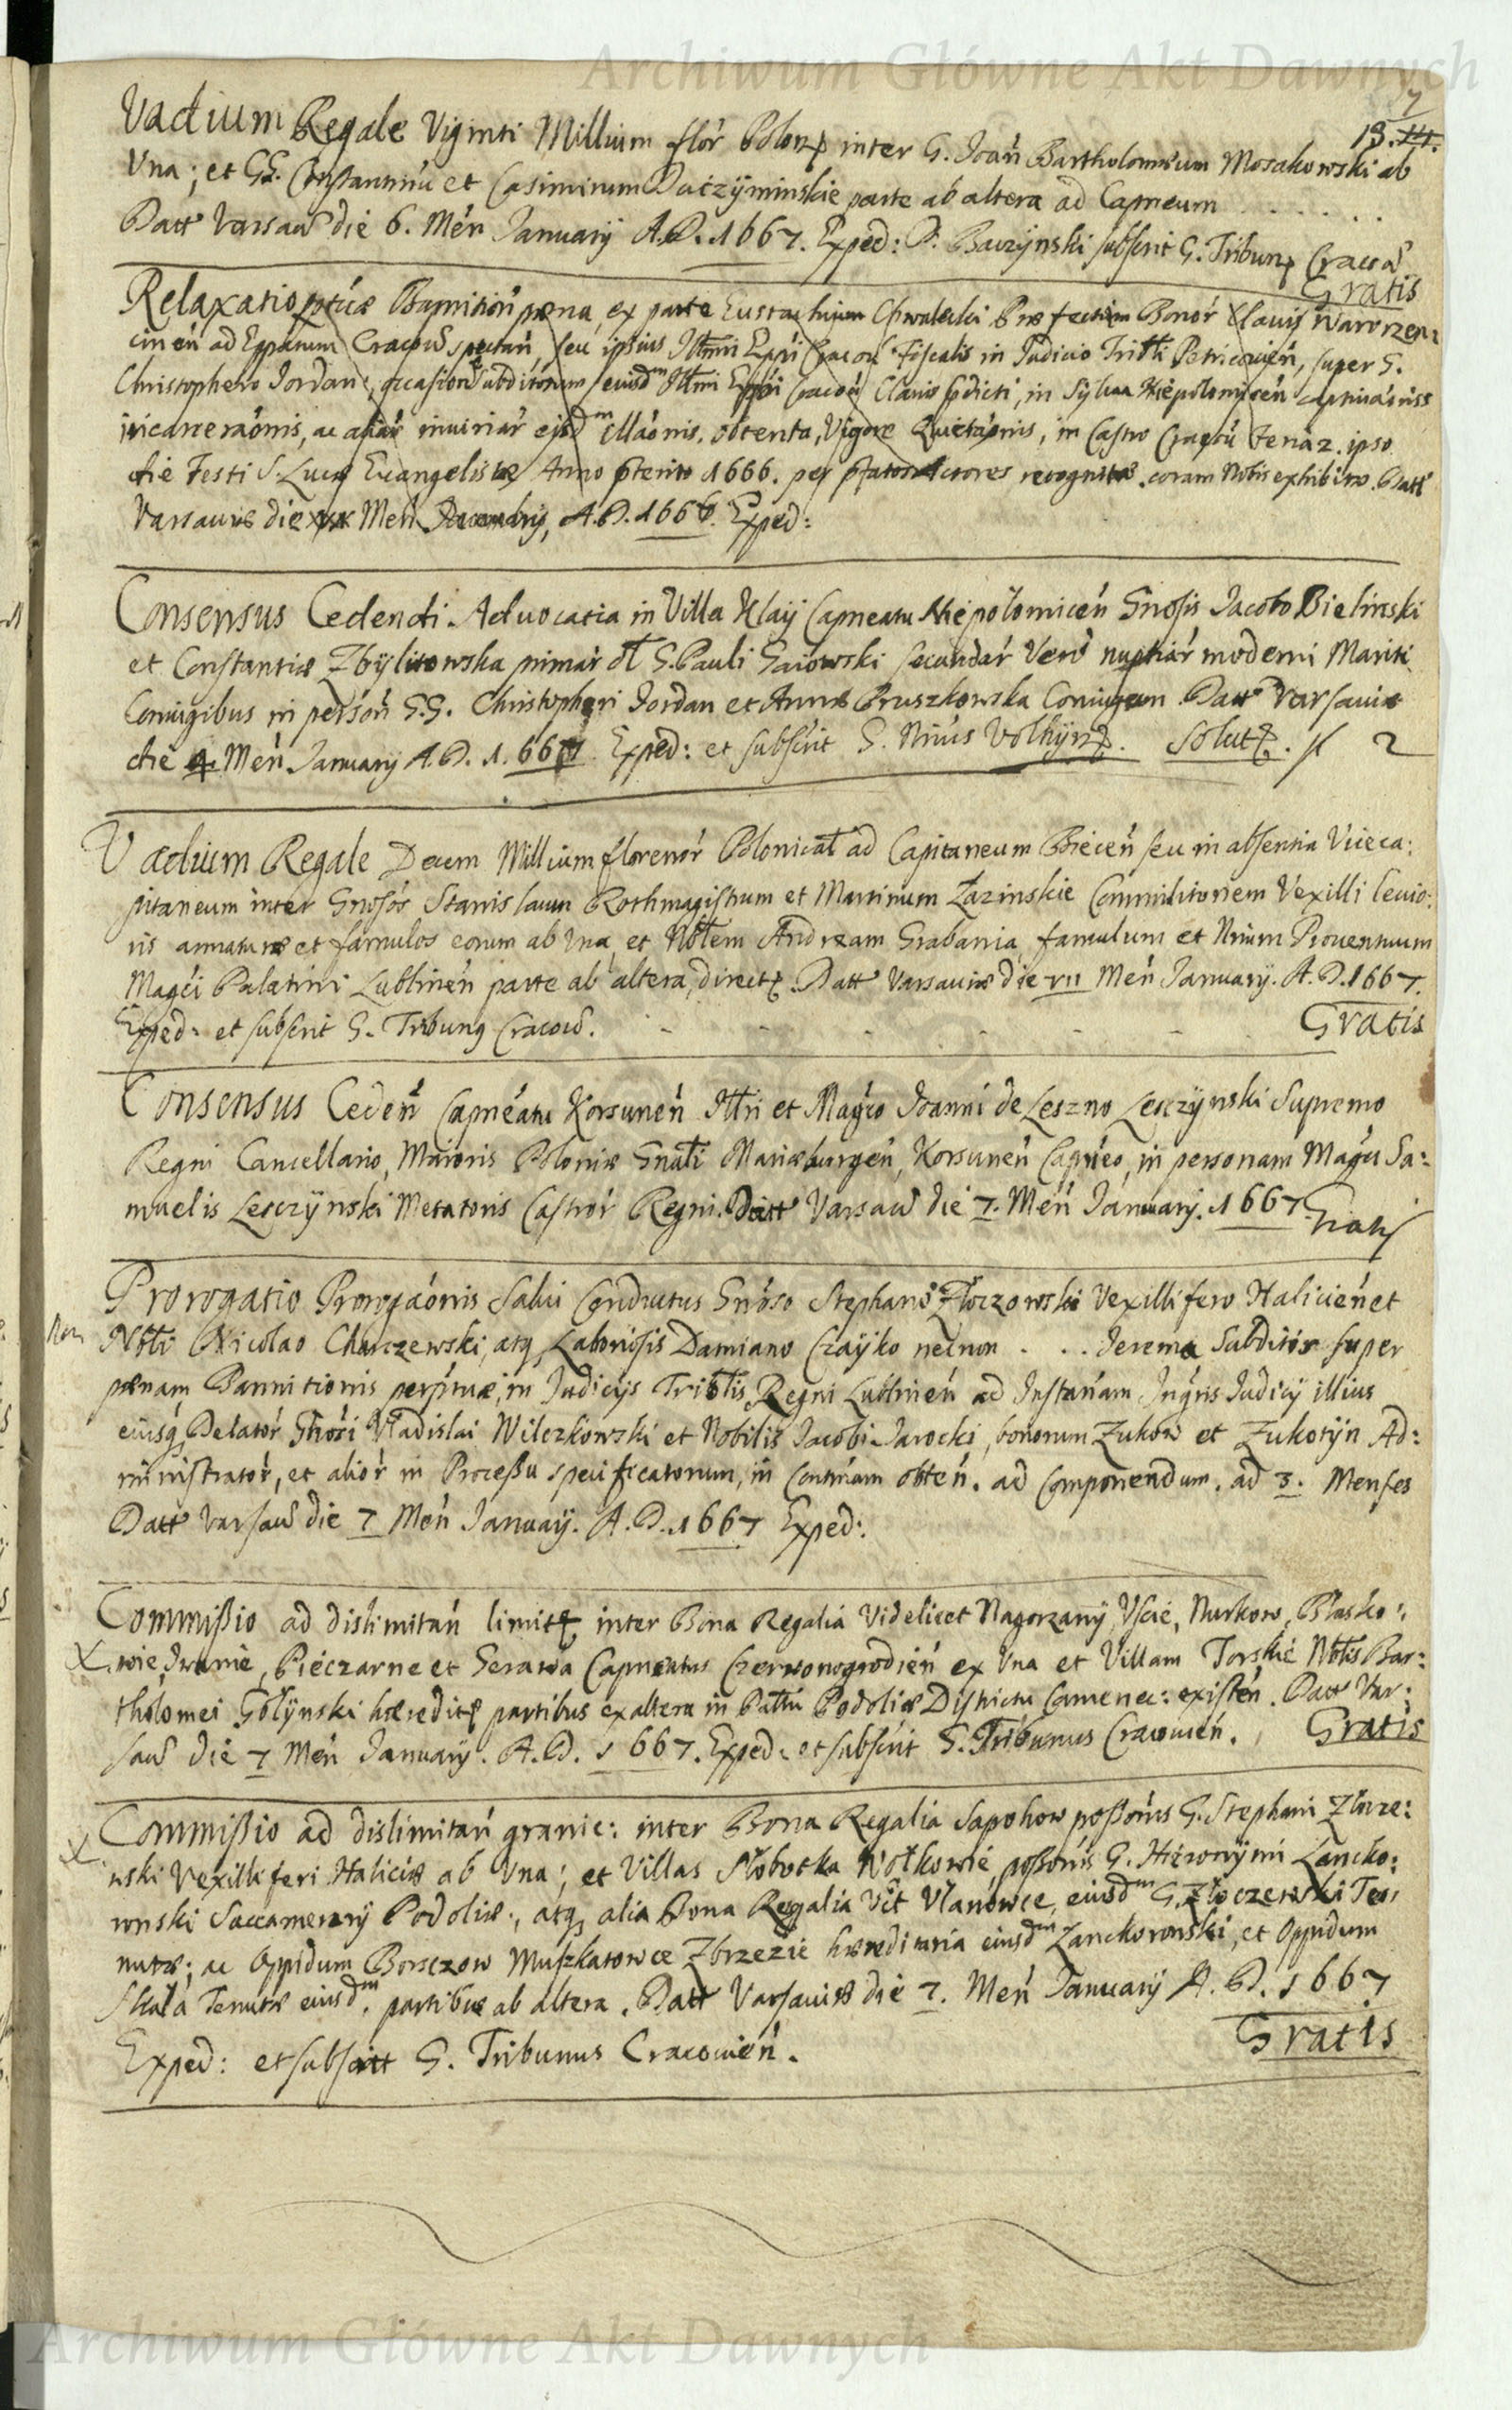 Archiwum Główne Akt Dawnych
7
13. 14.
Vadium Regale Viginti Millium flór Polon inter G. Joań Bartholomæum Mosakowski ab
Vna; et GG. Constantinũ et Casimirum Daczÿminskie parte ab altera ad Capneum . . . . . .
Datt Varsaw die 6. Meń Januarÿ A.D. 1667. Exped: D. Baczÿnski subscrit G. Tribun Cracow
Gratis
Relaxatio Bannition pæna, ex parte Eustachium Chwalecki Præfectum Bonór Clauis Wawrzen:
cineń ad Eppatum Cracow spectań, seu ipsius Illmi Eppi Cracow Fiscalis in Judicio Tritli Petricouień, super G.
Christophero Jordan, occasione subditorum eiusdm Illmi Eppi Clauis pdicti, in Sÿlua Niepolomiceń
incarceraónis, ac aliar iniuriar illaónis, obtenta, Vigore Quietaónis, in Castro ipso
die Festi S. Lucæ Euangelistæ Anno pterito 1666. per pfatos Actores recognitæ, coram Nobis exhibitæ. Datt
Varsauiæ die Meń A.D. 1666. Exped:
Consensus Cedendi Aduocatia in Villa Klaÿ Capneatu Niepołomiceń Gnosis Jacobo Bielinski
et Constantiæ Zbÿlitowska primar G. Pauli Gaiowski secundar Verò nuptiár moderni Mariti
Coniugibus in persón G.G. Christopheri Jordan et Annæ Pruszkowska Coniugum. Datt Varsauiæ
die 4 Meń Januarÿ A.D. 1.667. Exped: et subscrit G. Nrius Volhÿn. Solut. fl 2
Vadium Regale Decem Millium florenór Polonical ad Capitaneum Bieceń seu in absentia Viceca:
pitaneum inter Gnosós Stanislaum Rothmagistrum et Martinum Łazinskie Commilitonem Vexilli leuio:
ris armaturæ et famulos eorum ab Vna, et Nblem Andream Grabania famulum et Nrium Prouentuum
Magci Palatini Lublineń parte ab altera, direct. Datt Varsauiæ die VII Meń Januarÿ. A.D. 1667.
Exped: et subscrit G. Tribung Cracow. - - - - - - Gratis
Consensus Cedeń Capneatu Korsuneń Illri et Magco Joanni de Leszno Lesczÿnski Supremo
Regni Cancellario, Maioris Poloniæ Gnali Mariæburgeń, Korsuneń Capneo, in personam Magci Sa:
muelis Lesczÿnski Metatoris Castrór Regni. Datt Varsaw die 7. Meń Januarÿ. 1667. Gratis
Prorogatio Prorogaónis Salui Conductus Gnóso Stephano Złoczowski Vexillifero Halicień et
Non Nbli Nicolao Charczewski, atq Laboriosis Damiano Czaÿko necnon . . . Jerema Subditis super
pænam Bannitionis perptuæ, in Judicÿs Tribtlis Regni Lublineń ad Instańam Ingris Judicÿ illius
eiusq Delatór Gnosi Vladislai Wilczkowski et Nobilis Jacobi Jarocki, bonorum Zukow et Zukotÿn Ad:
ministratór, et aliór in Processu specificatorum, in Contmam obteń. ad Componendum. ad 3. Menses
Datt Varsaw die 7 Meń Januarÿ. A.D. 1667 Exped:.
Commißio ad dislimitań limit inter Bona Regalia Videlicet Nagorzanÿ, Vscie, Nurkow, Błasko:
X. wie, Iwanie, Pieczarne et Gerawa Capneatus Czerwonogrodień ex Vna et Villam Torskie Nblis Bar:
tholomei Gołÿnski hæredit partibus ex altera in Pattu Podoliæ Districtu Camenec: existeń. Datt Var:
saw die 7 Meń Januarÿ. A.D. 1667. Exped: et subscrit G. Tribunus Cracouień. Gratis
Commißio ad dislimitań granic: inter Bona Regalia Sapohow poßoris G. Stephani Złocze:
X wski Vexilliferi Haliciæ ab Vna; et Villas Słobotka Wołkowie, poßoris G. Hieronÿmi Lancko:
ronski Succamerarÿ Podoliæ:, atq alia Bona Regalia Vlt Vlanowce, eiusdm G. Złoczewski Te:
nutæ; ac Oppidum Borsczow Muszkatowce Zbrzezie hæreditaria eiusdm Lanckoronski, et Oppidum
Skala Tenutæ eiusdm, partibus ab altera. Datt Varsauiæ die 7. Meń Januarÿ A.D. 1667
Exped: et subscritt G. Tribunus Cracouień. Gratis
Archiwum Główne Akt Dawnych